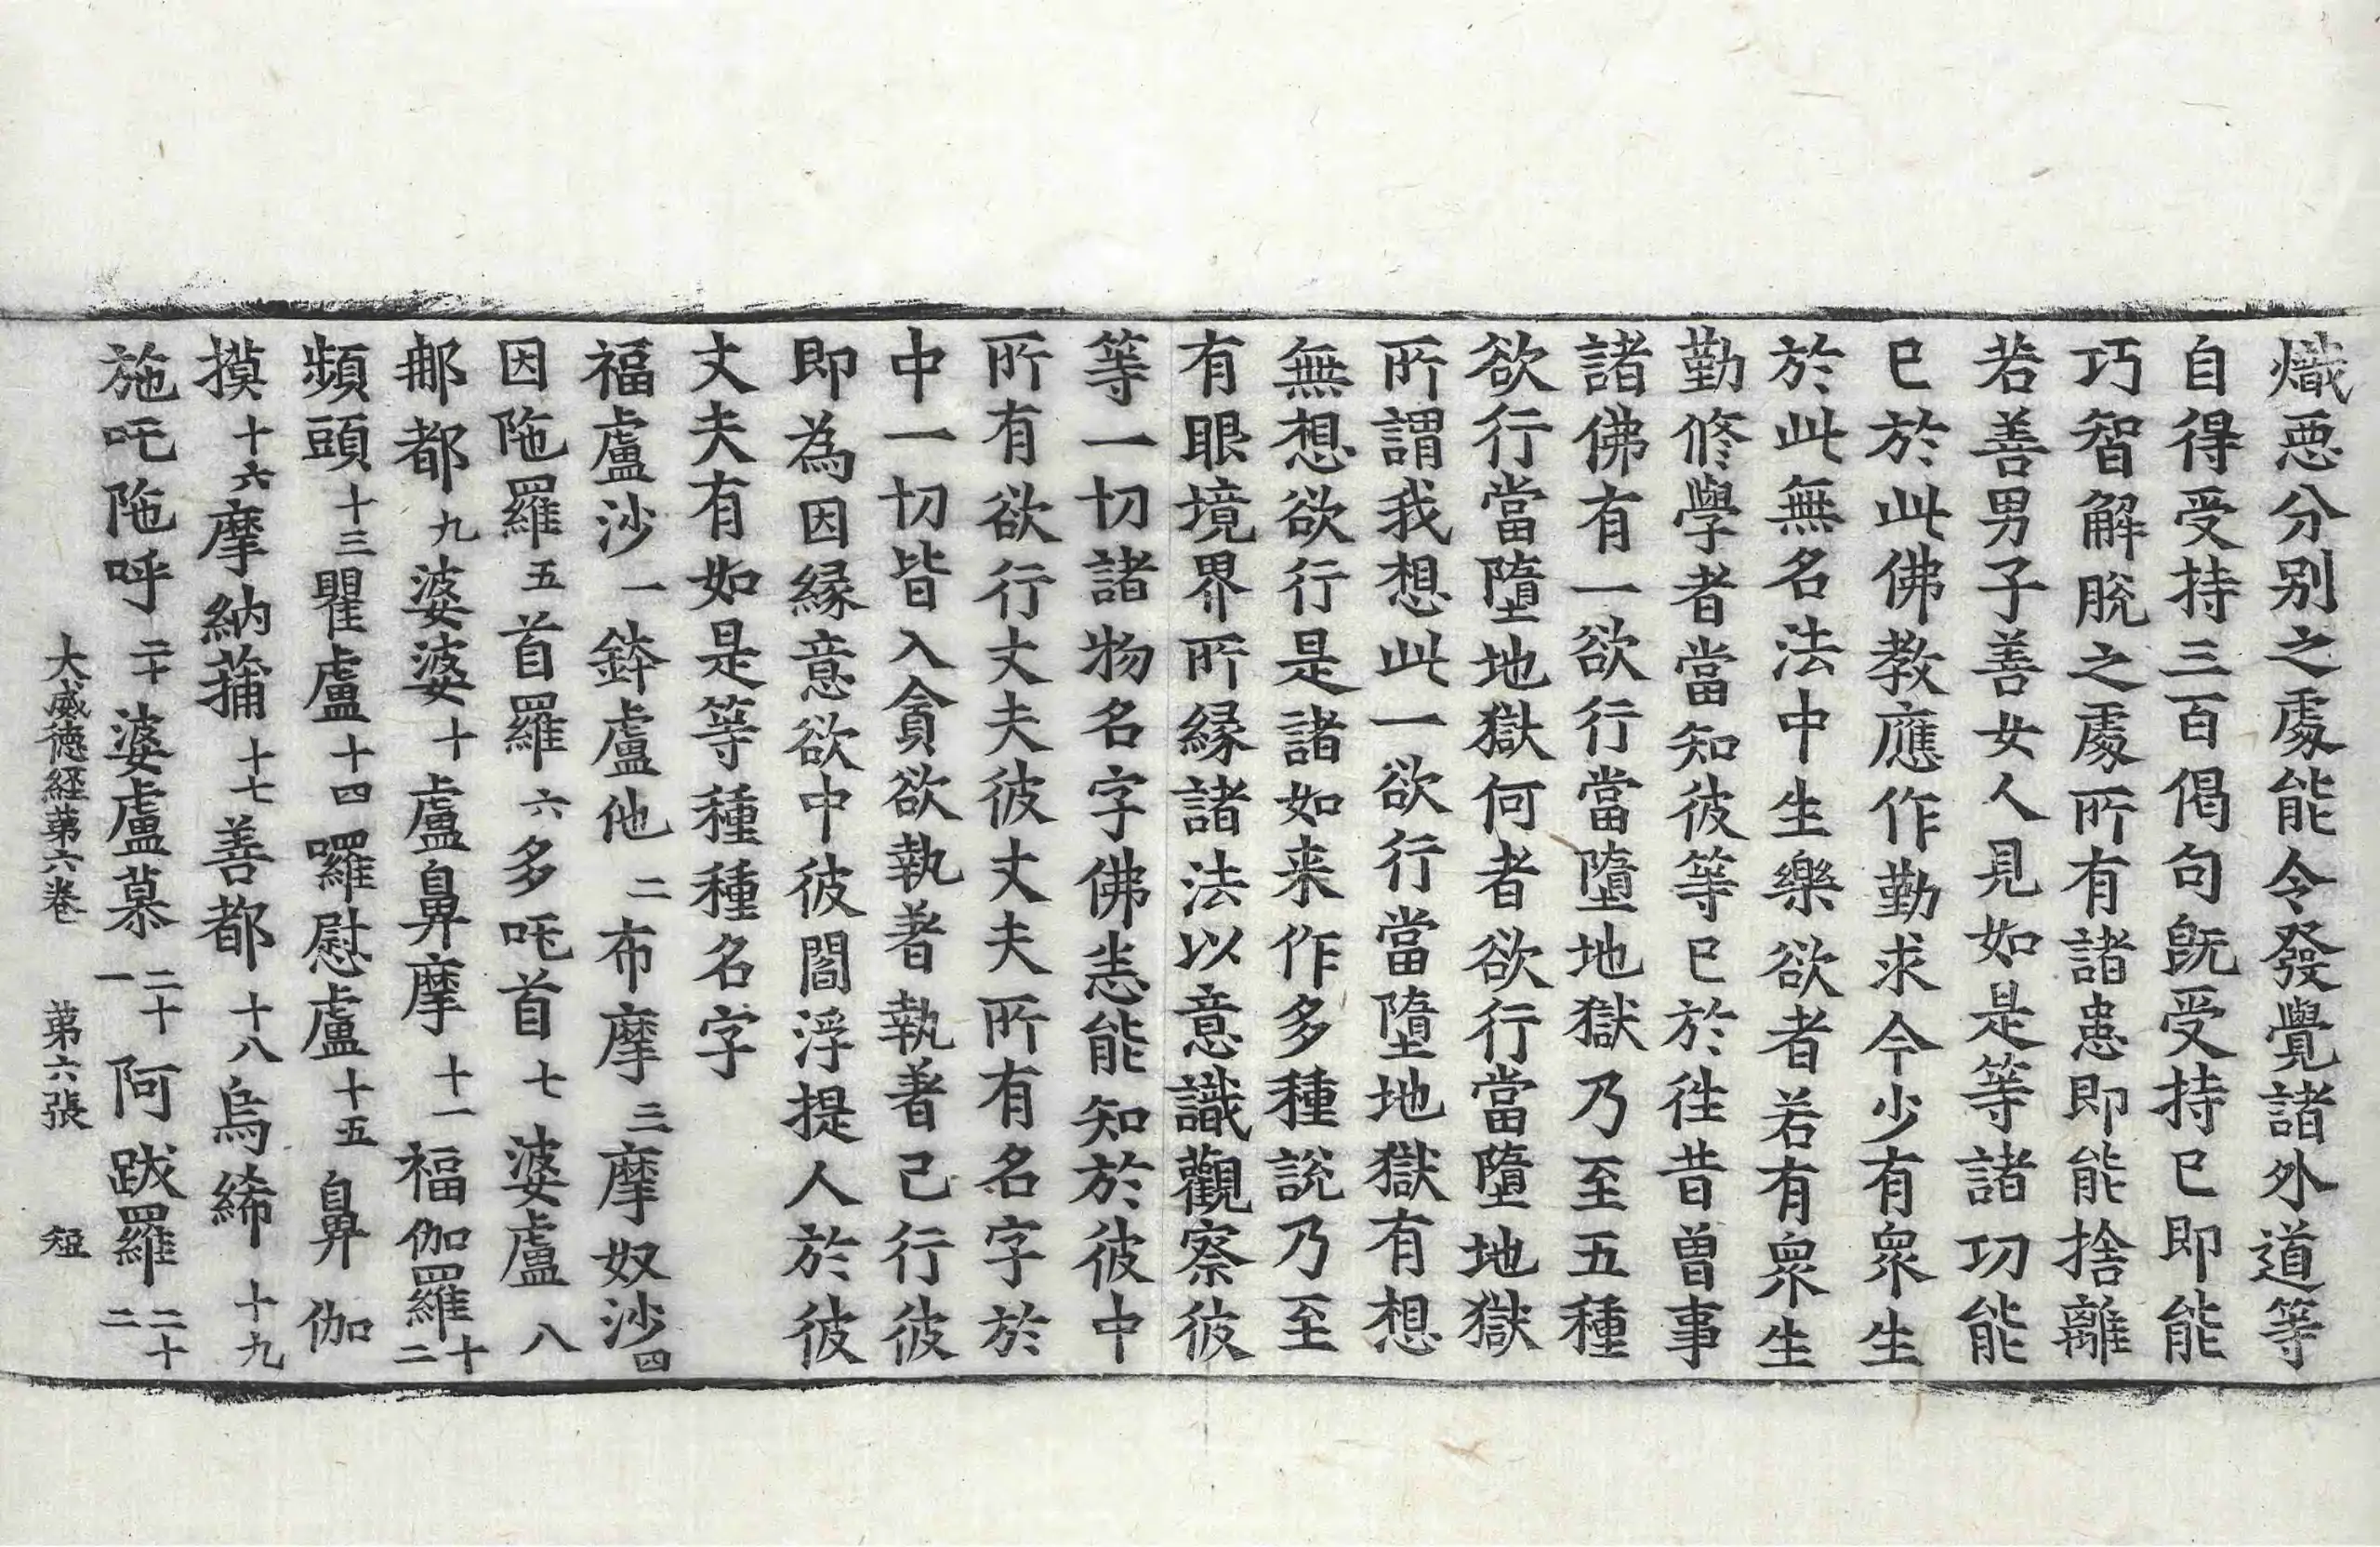 熾惡分別之處能令發覺諸外道等
自得受持三百偈句旣受持已即能
巧智解脫之處所有諸患即能捨離
若善男子善女人見如是等諸功能
已於此佛教應作勤求今少有衆生
於此無名法中生樂欲者若有衆生
勤修學者當知彼等已於往昔曾事
諸佛有一欲行當墮地獄乃至五種
欲行當墮地獄何者欲行當墮地獄
所謂我想此一欲行當墮地獄有想
無想欲行是諸如来作多種說乃至
有眼境界所緣諸法以意識觀察彼
等一切諸物名字佛恙能知於彼中
所有欲行丈夫彼丈夫所有名字於
中一切皆入貪欲執著執著己行彼
即為因緣意欲中彼閻浮提人於彼
丈夫有如是等種種名字
福盧沙一鉢盧他二布摩三摩奴沙四
因陁羅五首羅六多吒首七婆盧八
那都九婆婆十盧鼻摩十一福伽羅十二
頻頭十三瞿盧十四囉慰盧十五鼻伽
摸十六摩納蒲十七善都十八烏絺十九
施吒陁呼二十婆盧慕二十一阿跋羅二十二
大威德經第六卷 第六張 短